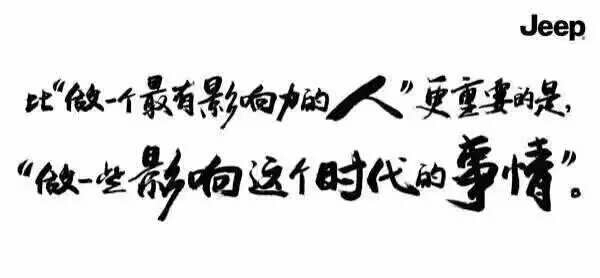 Jeep
比“做一个最有影响力的人”更重要的是，
“做一些影响这个时代的事情”。